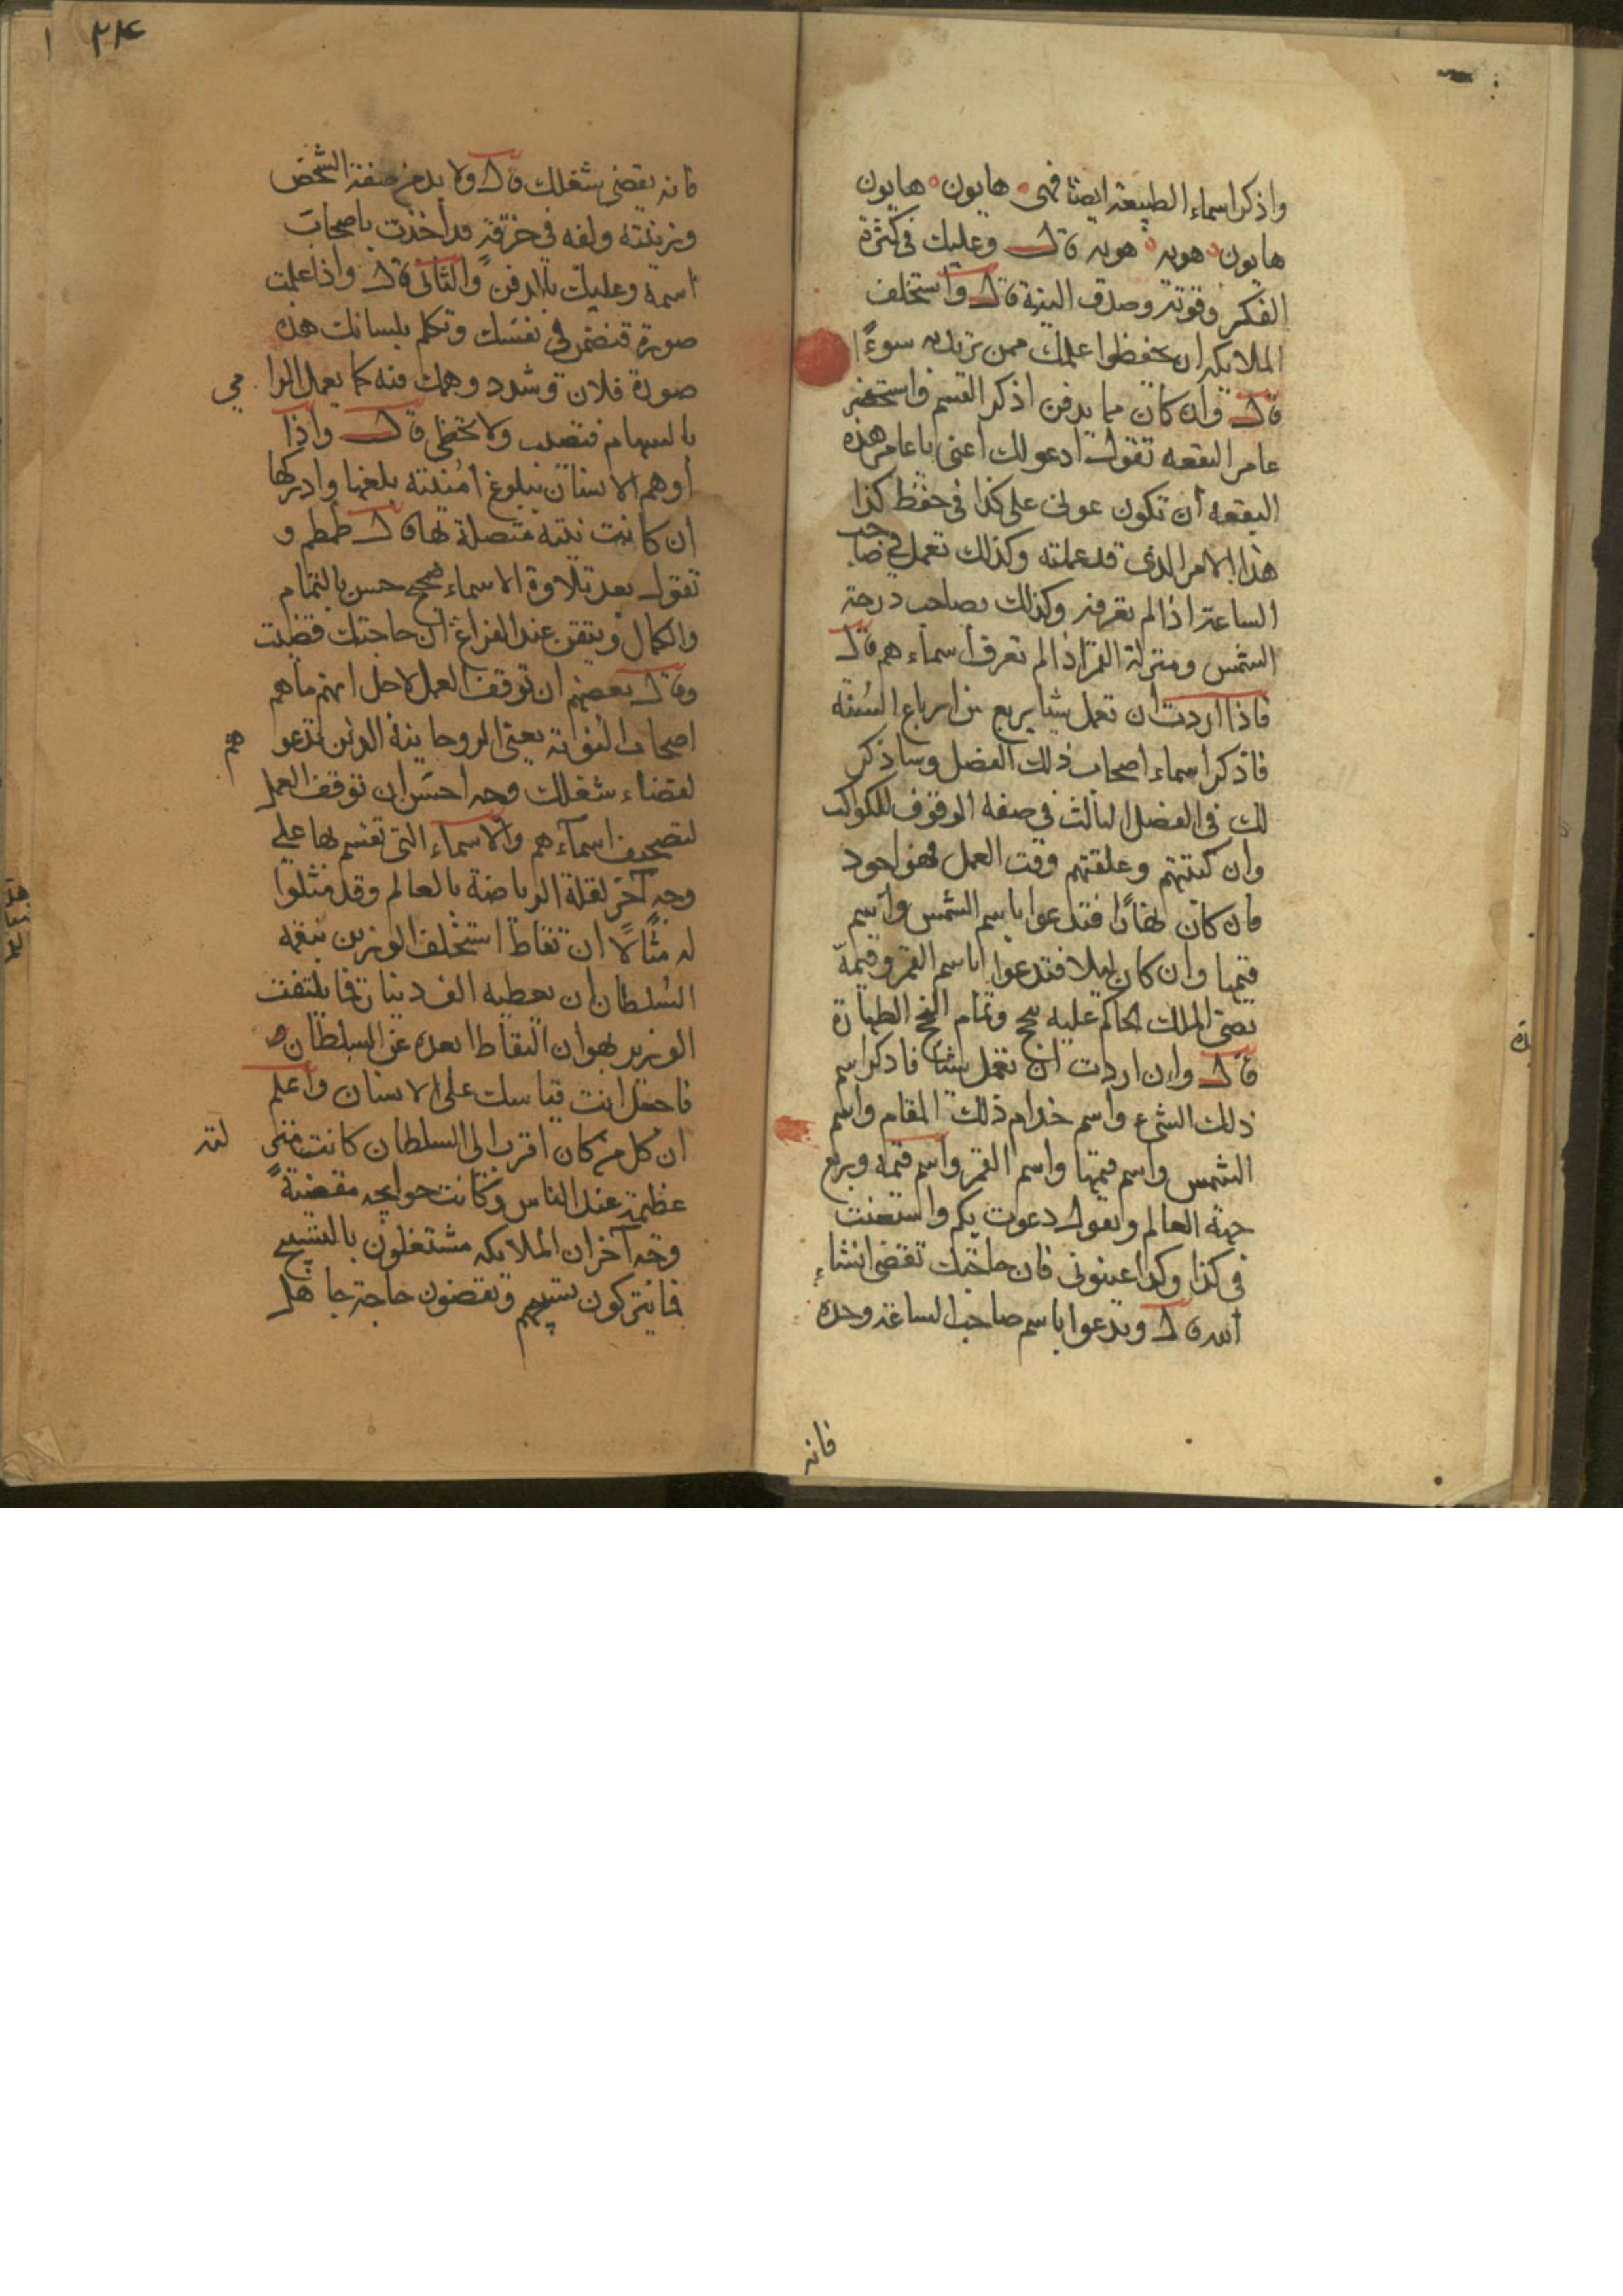 واذكر اسماء الطبيعة ايضا فهى هايون هايون
هايون هويه هويه قال وعليك فى كثرة
الفكر وقوته وصدق النية قال واستخلف
الملايكه ان يحفظوا عملك ممن يريد به سوءًا
قال وان كان مما يدفن اذكر القسم واستحضر
عامر البقعه تقول ادعولك اعنى يا عامر هذه
البقعه ان تكون عونى على كذا فى حفظ كذا
هذا الامر الذى قد عملته وكذلك تعمل فى صاحب
الساعة اذا لم تعرفه وكذلك بصاحب درجة
الشمس ومنزلة القمر اذا لم تعرف اسماءهم قال
فاذا اردت ان تعمل شيا بربع من ارباع السنة
فاذكر اسماء اصحاب ذلك الفصل وساذكر
لك فى الفصل الثالث فى صفة الوقوف للكواكب
وان كتبتهم وعلقتهم وقت العمل فهو اجود
فان كان نهارًا فتدعوا باسم الشمس واسم
قيمها وان كان ليلا فتدعوا باسم القمر وقيمه
الملك الحاكم عليه وتمام الطهارة
قال وان اردت ان تعمل شيا فاذكر اسم
ذلك الشىء واسم خدام ذلك المقام واسم
الشمس واسم قيمها واسم القمر واسم قيمه وربع
جهة العالم وتقول دعوت بكم واستعنت
فى كذا وكذا عينونى فان حاجتك تقضى انشاء
الله قال وتدعوا باسم صاحب الساعة وحده
فانه
٢٤
فانه يقضى شغلك قال ولا بد من صفة الشخص
وزينته ولفه فى خرقة قد اخذت باصحاب
اسمه وعليك بالدفن والثانى قال واذا علمت
صورة فتضمن فى نفسك وتكلم بلسانك هذه
صورة فلان وشدد وهمك فيه كما يعمل الرامي
بالسهام فتصيب ولا تخطى قال واذا
اوهم الانسان ببلوغ امنيته بلغها وادركها
ان كانت نيته متصلة بها قال طمطم و
تقول بعد تلاوة الاسماء صحيح حسن بالتمام
والكمال وتيقن عند الفراغ ان حاجتك قضيت
وقال بعضهم ان توقف العمل لاجل انهم ما هم
اصحاب النوبة يعنى الروحانية الذين تدعوهم
لقضاء شغلك وجه احسن ان توقف العمل
لتصحيف اسماءهم والاسماء التى تقسم بها على
وجه آخر لقلة الرياضة بالعالم وقد مثلوا
له مثالًا ان نفاطا استخلف الوزير بنعمه
السلطان ان يعطيه الف دينار فما يلتفت
الوزير لهوان النفاط لبعده عن السلطان
فاحفظ انت قياسك على الانسان واعلم
ان كل من كان اقرب الى السلطان كانت منزلته
عظيمة عند الناس وكانت حوايجه مقضيةً
وجه آخر ان الملايكه مشتغلون بالتسبيح
فما يتركون تسبيحهم ويقضون حاجة جاهل